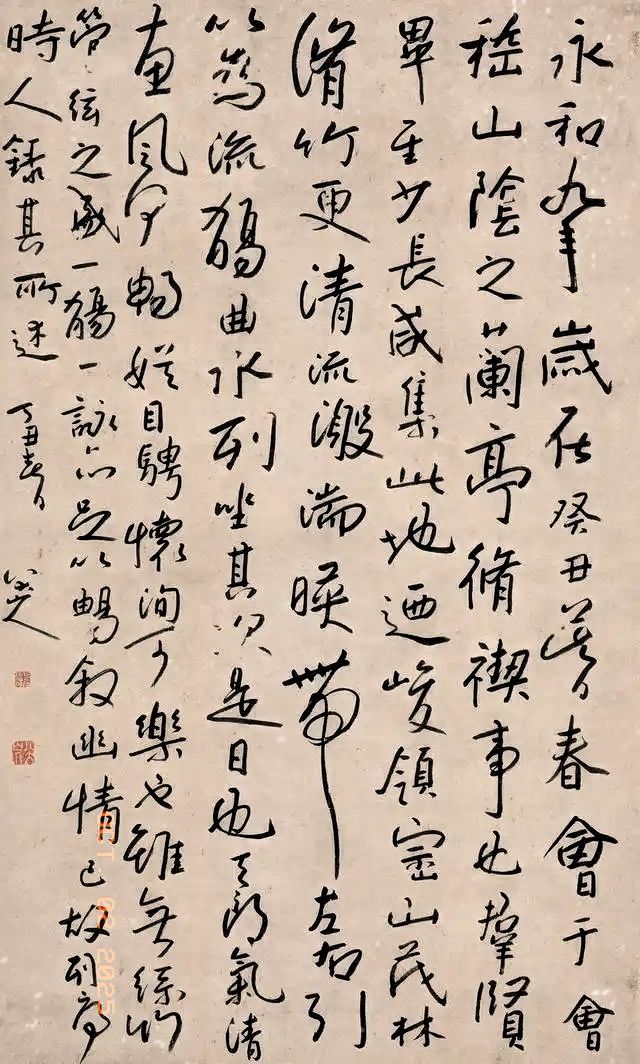 永和九年歲在癸丑暮春會于會
稽山陰之蘭亭脩禊事也羣賢
畢至少長咸集此地迺峻領崇山茂林
脩竹更清流激湍暎帶左右引
以為流觴曲水列坐其次是日也天朗氣清
惠風和暢娛目騁懷洵可樂也雖無絲竹
管絃之盛一觴一詠亦足以暢敘幽情已故列序
時人錄其所述 丁丑春日 八大山人
2025